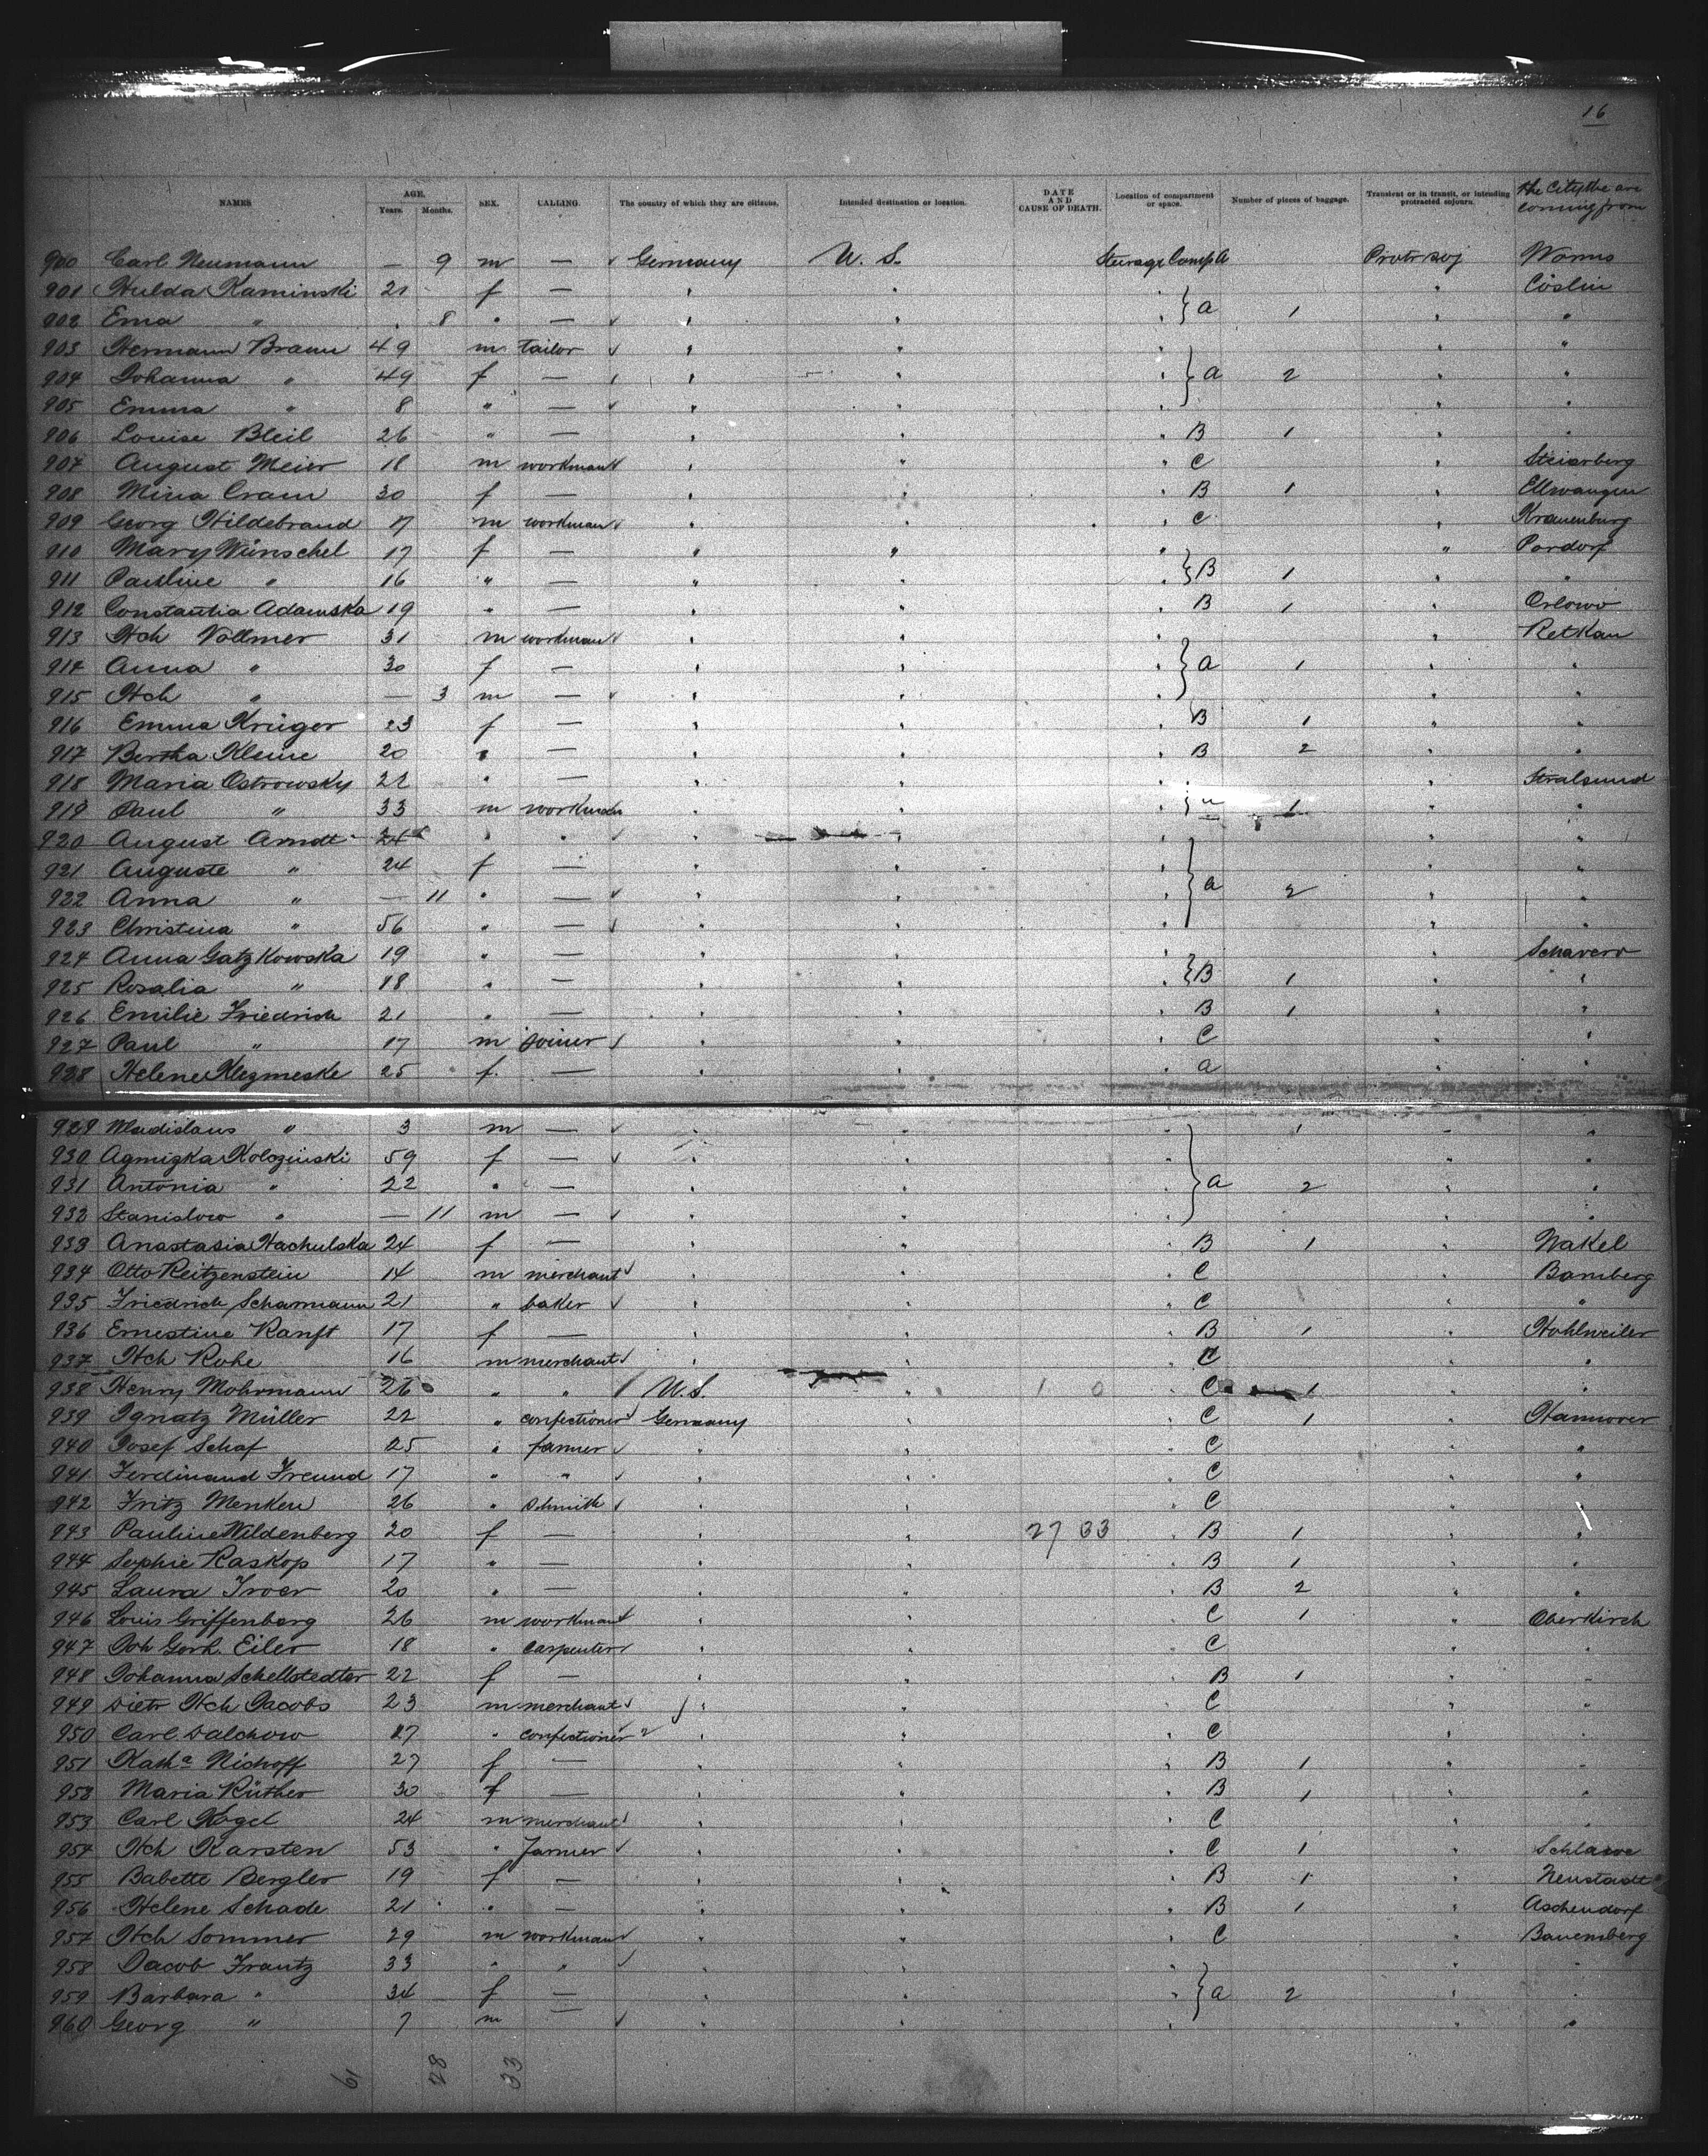 16
NAMES AGE. Years. Months. SEX. CALLING. The country of which they are citizens. Intended destination or location. DATE AND CAUSE OF DEATH. Location of compartment or space. Number of pieces of baggage. Transient or in transit, or intending protracted sojourn. the City the are coming from
900 Carl Neumann — 9 m — Germany U. S. Steerage Comp A Protr soj Worms
901 Hulda Kaminski 21 f — " " " " Cöslin
902 Erna " 8 " — " " " } a 1 " "
903 Hermann Braun 49 m tailor " " " " "
904 Johanna " 49 f — " " " } a 2 " "
905 Emma " 8 " — " " " " "
906 Louise Bleil 26 " — " " " B 1 " "
907 August Meier 18 m workman " " " C "
908 Mina Cram 30 f — " " " B 1 " Ellwangen
909 Georg Hildebrand 17 m workman " " " C " Kranenburg
910 Mary Wünschel 17 f — " " " " Pordorf
911 Pauline " 16 " — " " " } B 1 " "
912 Constantia Adamska 19 " — " " " B 1 " Orlowo
913 Hch Vollmer 31 m workman " " " " Retkau
914 Anna " 30 f — " " " } a 1 " "
915 Hch " — 3 m — " " " " "
916 Emma Krüger 23 f — " " " B 1 " "
917 Bertha Kleine 20 " — " " " B 2 " "
918 Maria Ostrowsky 22 " — " " " " Stralsund
919 Paul " 33 m workman " " " 1 " "
920 August Arndt 24 " " " " " " "
921 Auguste " 24 f — " " " " "
922 Anna " — 11 " — " " " } a 2 " "
923 Christina " 56 " — " " " " "
924 Anna Gatzkowska 19 " — " " " "
925 Rosalia " 18 " — " " " } B 1 " "
926 Emilie Friedrich 21 " — " " " B 1 " "
927 Paul " 17 m joiner " " " C " "
928 Helene Klezmeske 25 f. — " " " a " "
929 Wladislaus " 3 m — " " " 1 " "
930 Agnizka Kolozinski 59 f — " " " " "
931 Antonia " 22 " — " " " } a 2 " "
932 Stanislow " — 11 m — " " " " "
933 Anastasia Hachulska 24 f — " " " B 1 " Nakel
934 Otto Reitzenstein 14 m merchant " " " C " Bamberg
935 Friedrich Scharmann 21 " baker " " " C " "
936 Ernestine Ranft 17 f — " " " B 1 " Hohlweiler
937 Hch Rohe 16 m merchant " " " C " "
938 Henry Mohrmann 26 " " U.S. " " C 1 " "
939 Ignatz Müller 22 " confectioner Germany " " C 1 " Hannover
940 Josef Schaf 25 " farmer " " " C " "
941 Ferdinand Freund 17 " " " " " C " "
942 Fritz Menken 26 " schmith " " " C " "
943 Pauline Wildenberg 20 f — " " 27 33 " B 1 " "
944 Sophie Raskop 17 " — " " " B 1 " "
945 Laura Troer 20 " — " " " B 2 " "
946 Louis Griffenberg 26 m workman " " " C 1 " Oberkirch
947 Joh Gerh. Eiler 18 " carpenter " " " C " "
948 Johanna Schellstedter 22 f — " " " B 1 " "
949 Dietr Hch Jacobs 23 m merchant " " " C " "
950 Carl Dalchow 27 " confectioner " " " C " "
951 Katha Niehoff 27 f — " " " B 1 " "
952 Maria Rüther 30 f — " " " B 1 " "
953 Carl Kogel 24 m merchant " " " C " "
954 Hch Karsten 53 " Farmer " " " C 1 " Schlawe
955 Babette Bergler 19 f — " " " B 1 " Neustadt
956 Helene Schade 21 " — " " " B 1 " Aschendorf
957 Hch Sommer 29 m workman " " " C " Bauemberg
958 Jacob Frantz 33 " " " " " " "
959 Barbara " 34 f — " " " } a 2 " "
960 Georg " 7 m — " " " "
61 28 33